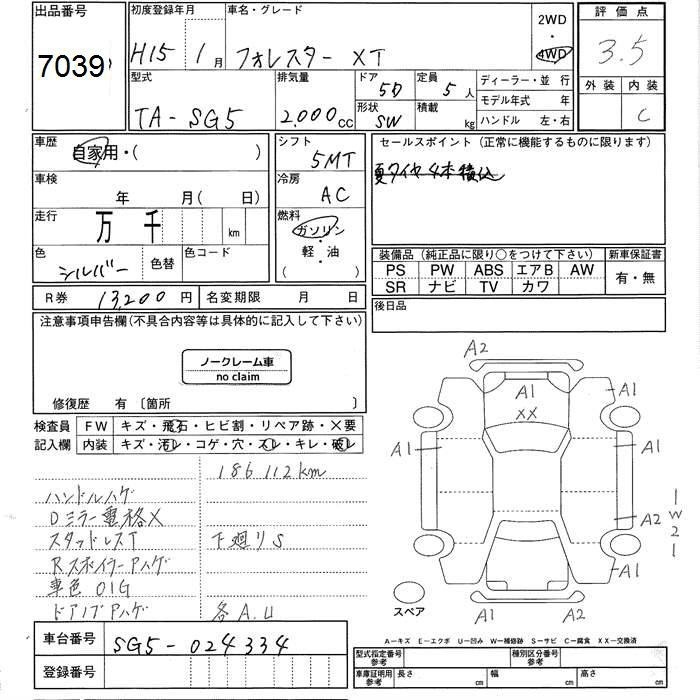 出品番号
7039
初度登録年月
H15 1月
車名・グレード
フォレスター XT
2WD
・
4WD
評価点
3.5
型式
TA-SG5
排気量
2,000cc
ドア
5D
形状
SW
定員
5人
積載
kg
ディーラー・並行
モデル年式 年
ハンドル 左・右
外装 内装
C
車歴
自家用・( )
車検
年 月( 日)
走行
万 千 km
色
シルバー
色替
色コード
シフト
5MT
冷房
AC
燃料
ガソリン
・
軽・油
( )
セールスポイント (正常に機能するものに限ります)
夏タイヤ4本積込
装備品 (純正品に限り○をつけて下さい)
PS PW ABS エアB AW
SR ナビ TV カワ
新車保証書
有・無
R券 13,200円
名変期限 月 日
後日品
注意事項申告欄(不具合内容等は具体的に記入して下さい)
ノークレーム車
no claim
修復歴 有 〔箇所 〕
検査員
記入欄
FW キズ・飛石・ヒビ割・リペア跡・×要
内装 キズ・汚レ・コゲ・穴・スレ・キレ・破レ
186112km
ハンドルハゲ
Dミラー電格X
スタッドレスT
下廻りS
RスポイラーAハゲ
車色 01G
ドアノブAハゲ
各A.U
A2
A1
XX
A1
A1
A1
A2
1W21
A1
A1
A2
スペア
A-キズ E-エクボ U-凹み W-補修跡 S-サビ C-腐食 XX-交換済
車台番号
SG5-024334
登録番号
型式指定番号
参考
種別区分番号
参考
車庫証明用
参考
長さ cm
幅 cm
高さ cm